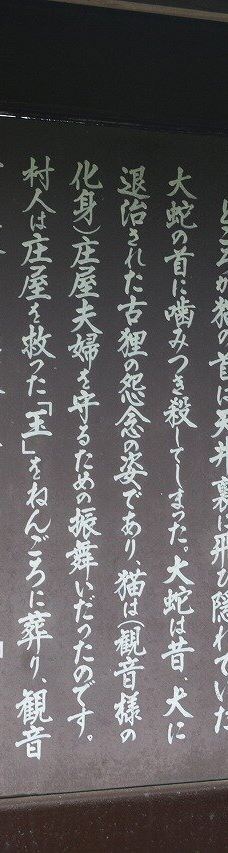 ところが猫の首は天井裏に飛び隠れていた
大蛇の首に噛みつき殺してしまった。大蛇は昔、犬に
退治された古狸の怨念の姿であり、猫は(観音様の
化身)庄屋夫婦を守るための振舞いだったのです。
村人は庄屋を救った「玉」をねんごろに葬り、観音